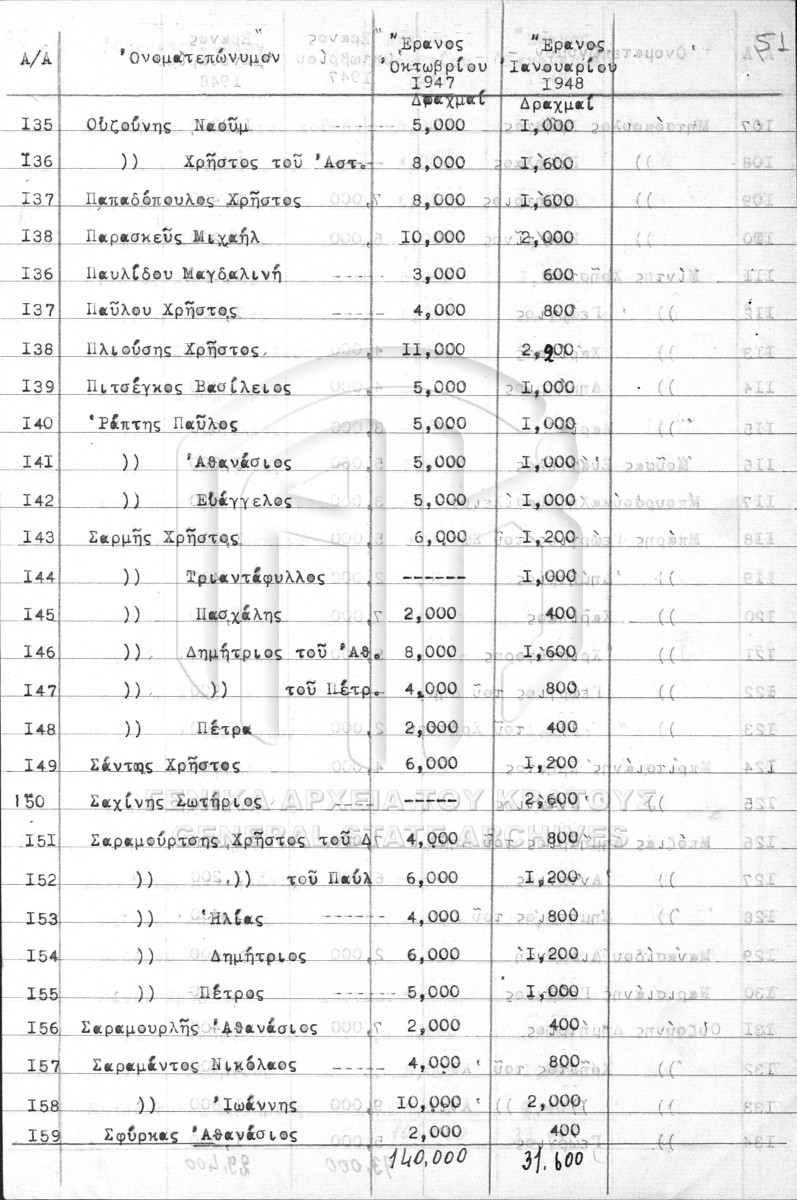 51
Α/Α Ὀνοματεπώνυμον Ἔρανος Ὀκτωβρίου 1947 Δραχμαί Ἔρανος Ἰανουαρίου 1948 Δραχμαί
I35 Οὐζούνης Ναοῦμ ----- 5,000 I,000
I36 )) Χρῆστος τοῦ Ἀστ.- 8,000 I,600
I37 Παπαδόπουλος Χρῆστος 8,000 I,600
I38 Παρασκεῦς Μιχαήλ IO,000 2,000
I36 Παυλίδου Μαγδαλινή ----- 3,000 600
I37 Παῦλου Χρῆστος ---- 4,000 800
I38 Πλιούσης Χρῆστος II,000 2,200
I39 Πιτσέγκος Βασίλειος 5,000 I,000
I40 Ῥάπτης Παῦλος 5,000 I,000
I4I )) Ἀθανάσιος 5,000 I,000
I42 )) Εὐάγγελος 5,000 I,000
I43 Σαρμῆς Χρῆστος 6,000 I,200
I44 )) Τριαντάφυλλος ------ I,000
I45 )) Πασχάλης 2,000 400
I46 )) Δημήτριος τοῦ Ἀθ. 8,000 I,600
I47 )) )) τοῦ Πέτρ.- 4,000 800
I48 )) Πέτρα 2,000 400
I49 Σάντης Χρῆστος 6,000 I,200
I50 Σαχίνης Σωτήριος ---- ----- 2,600
ΓΕΝΙΚΑ ΑΡΧΕΙΑ ΤΟΥ ΚΡΑΤΟΥΣ
GENERAL STATE ARCHIVES
I5I Σαραμούρτσης Χρῆστος τοῦ Δ 4,000 800
I52 )) )) τοῦ Παύλ 6,000 I,200
I53 )) Ἠλίας ----- 4,000 800
I54 )) Δημήτριος 6,000 I,200
I55 )) Πέτρος ----- 5,000 I,000
I56 Σαραμουρλῆς Ἀθανάσιος 2,000 400
I57 Σαραμάντος Νικόλαος 4,000 800
I58 )) Ἰωάννης IO,000 2,000
I59 Σφύρκας Ἀθανάσιος 2,000 400
140,000 31.600